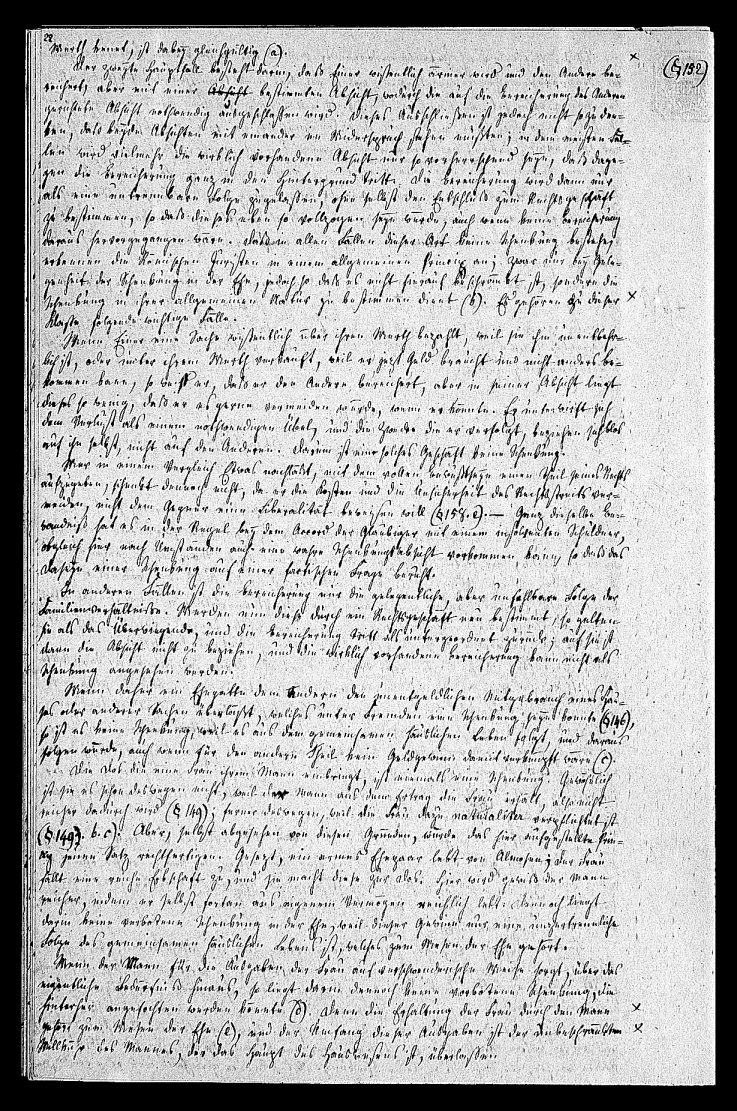 22
Werth kennt, ist dabey gleichgültig (a).
(§ 152)
Der zweyte Hauptfall besteht darin, daß Einer wissentlich ärmer wird und den Andere be-
reichert, aber mit einer bestimmten Absicht, wodurch die auf die Bereicherung des Anderen
gerichtete Absicht nothwendig ausgeschlossen wird. Dieses Ausschließen ist jedoch nicht so zu den-
ken, daß beyde Absichten mit einander im Widerspruch stehen müßten; in den meisten Fäl-
len wird vielmehr die wirklich vorhandene Absicht nur so vorherrschend seyn, daß dage-
gen die Bereicherung ganz in den Hintergrund tritt. Die Bereicherung wird dann nur
als eine untrennbare Folge zugelassen, ohne selbst den Entschluß zum Rechtsgeschäft
zu bestimmen, so daß dieses eben so vollzogen seyn würde, auch wenn keine Bereicherung
daraus hervorgegangen wäre. Daß in allen Fällen dieser Art keine Schenkung bestehe,
erkennen die Römischen Juristen in einem allgemeinen Princip an; zwar nur bey Gele-
genheit der Schenkung in der Ehe, jedoch so daß es nicht hierauf beschränkt ist, sondern die
Schenkung in ihrer allgemeinen Natur zu bestimmen dient (b). Es gehören zu dieser
Klasse folgende wichtige Fälle.
Wenn Einer eine Sache wissentlich über ihren Werth bezahlt, weil sie ihm unentbehr-
lich ist, oder unter ihrem Werth verkauft, weil er jetzt Geld braucht und nicht anders be-
kommen kann, so weiß er, daß er den Andere bereichert, aber in seiner Absicht liegt
dieses so wenig, daß er es gerne vermeiden würde, wenn er könnte. Er unterwirft sich
dem Verlust als einem nothwendigen Übel, und die Zwecke die er verfolgt, beziehen sich blos
auf ihn selbst, nicht auf den Anderen. Darum ist ein solches Geschäft keine Schenkung.
Wer in einem Vergleich Etwas nachläßt, mit dem vollen Bewußtseyn einen Theil seines Rechts
aufzugeben, schenkt dennoch nicht, da er die Kosten und die Unsicherheit des Rechtsstreits ver-
meiden, nicht dem Gegner eine Liberalität beweisen will (§ 158. e). — Ganz dieselbe Be-
wandniß hat es in der Regel bey dem Accord der Gläubiger mit einem insolventen Schuldner,
obgleich hier nach Umständen auch eine wahre Schenkungsabsicht vorkommen kann, so daß das
Daseyn einer Schenkung auf einer factischen Frage beruht.
In anderen Fällen ist die Bereicherung nur die gelegentliche, aber unfehlbare Folge der
Familienverhältnisse. Werden nun diese durch ein Rechtsgeschäft neu bestimmt, so gelten
sie als das Überwiegende, und die Bereicherung tritt als untergeordnet zurück; auf sie ist
dann die Absicht nicht zu beziehen, und die wirklich vorhandene Bereicherung kann nicht als
Schenkung angesehen werden.
Wenn daher ein Ehegatte dem Andern den unentgeldlichen Mitgebrauch eines Hau-
ses oder anderer Sachen überläßt, welches unter Fremden eine Schenkung seyn könnte (§ 146),
so ist es keine Schenkung, weil es aus dem gemeinsamen häuslichen Leben folgt, und daraus
folgen würde, auch wenn für den andern Theil kein Geldgewinn damit verknüpft wäre (c).
Die Dos, die eine Frau ihrem Mann einbringt, ist niemals eine Schenkung. Gewöhnlich
ist sie es schon deswegen nicht, weil der Mann aus dem Ertrag die Frau erhält, also nicht
reicher dadurch wird (§ 149); ferner deswegen, weil die Frau dazu naturaliter verpflichtet ist
(§ 149. b. c). Aber, selbst abgesehen von diesen Gründen, würde das hier aufgestellte Prin-
cip jenen Satz rechtfertigen. Gesetzt, ein armes Ehepaar lebt von Almosen; der Frau
fällt eine reiche Erbschaft zu, und sie macht diese zur Dos. Hier wird gewiß der Mann
reicher, indem er selbst fortan aus eigenem Vermögen reichlich lebt. Dennoch liegt
darin keine verbotene Schenkung in der Ehe, weil dieser Gewinn nur eine unzertrennliche
Folge des gemeinsamen häuslichen Lebens ist, welches zum Wesen der Ehe gehört.
Wenn der Mann für die Ausgaben der Frau auf verschwenderische Weise sorgt, über das
eigentliche Bedürfniß hinaus, so liegt darin dennoch keine verbotene Schenkung, die
hinterher angefochten werden könnte (d). Denn die Erhaltung der Frau durch den Mann
gehört zum Wesen der Ehe (e), und der Umfang dieser Ausgaben ist der unbeschränkten
Willkühr des Mannes, der das Haupt des Hauswesens ist, überlassen